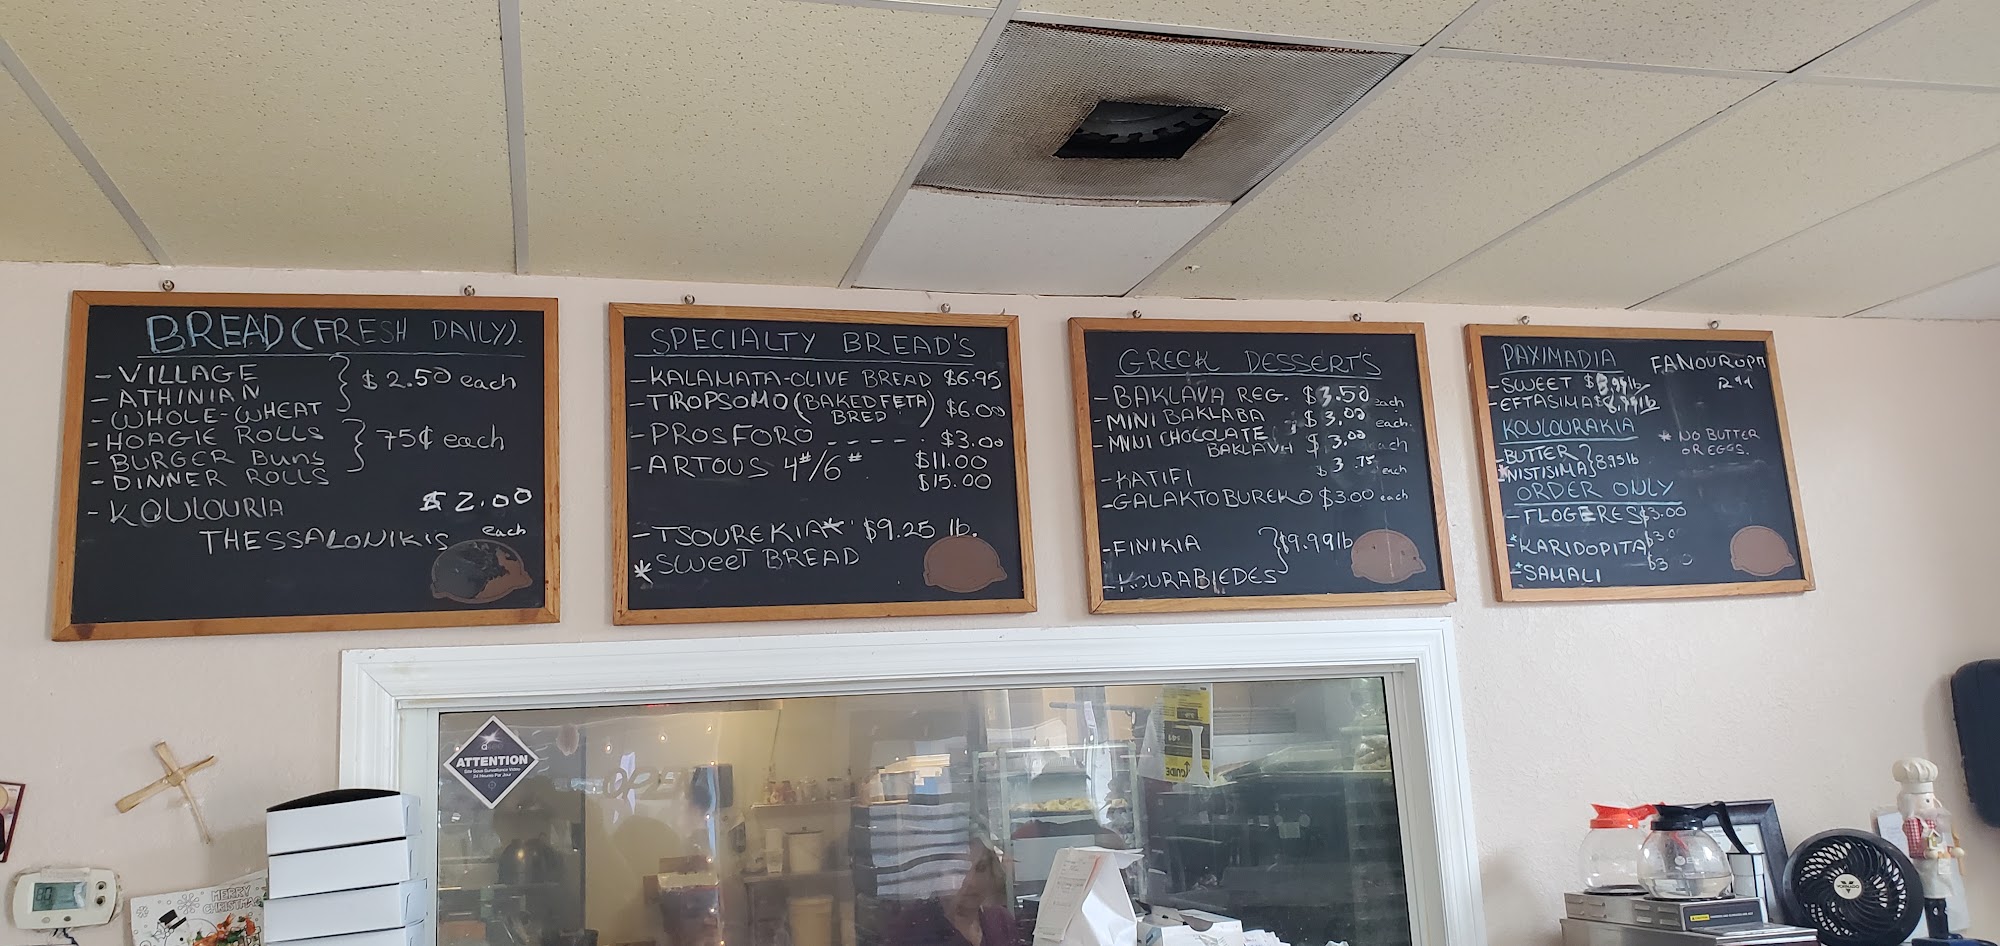 BREAD (FRESH DAILY).
- VILLAGE
- ATHINIAN
- WHOLE-WHEAT
$2.50 each
- HOAGIE ROLLS
- BURGER BUNS
- DINNER ROLLS
75¢ each
- KOULOURIA $2.00
THESSALONIKIS each
SPECIALTY BREAD'S
- KALAMATA-OLIVE BREAD $6.95
- TIROPSOMO (BAKED FETA BRED) $6.00
- PROSFORO - - - - - $3.00
- ARTOUS 4#/6# $11.00
$15.00
- TSOUREKIA* $9.25 lb.
* SWEET BREAD
GREEK DESSERT'S
- BAKLAVA REG. $3.50 each
- MINI BAKLABA $3.00 each
- MINI CHOCOLATE
BAKLAVA $3.00 each
- KATIFI $3.75 each
- GALAKTOBUREKO $3.00 each
- FINIKIA
- KOURABIEDES
$9.99lb
PAXIMADIA
- SWEET
- EFTASIMA $8.99lb
KOULOURAKIA
- BUTTER
* NISTISIMA
8.95lb
* NO BUTTER
OR EGGS.
ORDER ONLY
- FLOGERES $3.00
- KARIDOPITA
- SAMALI
ATTENTION
MERRY
CHRISTMAS
OPEN
VORNADO